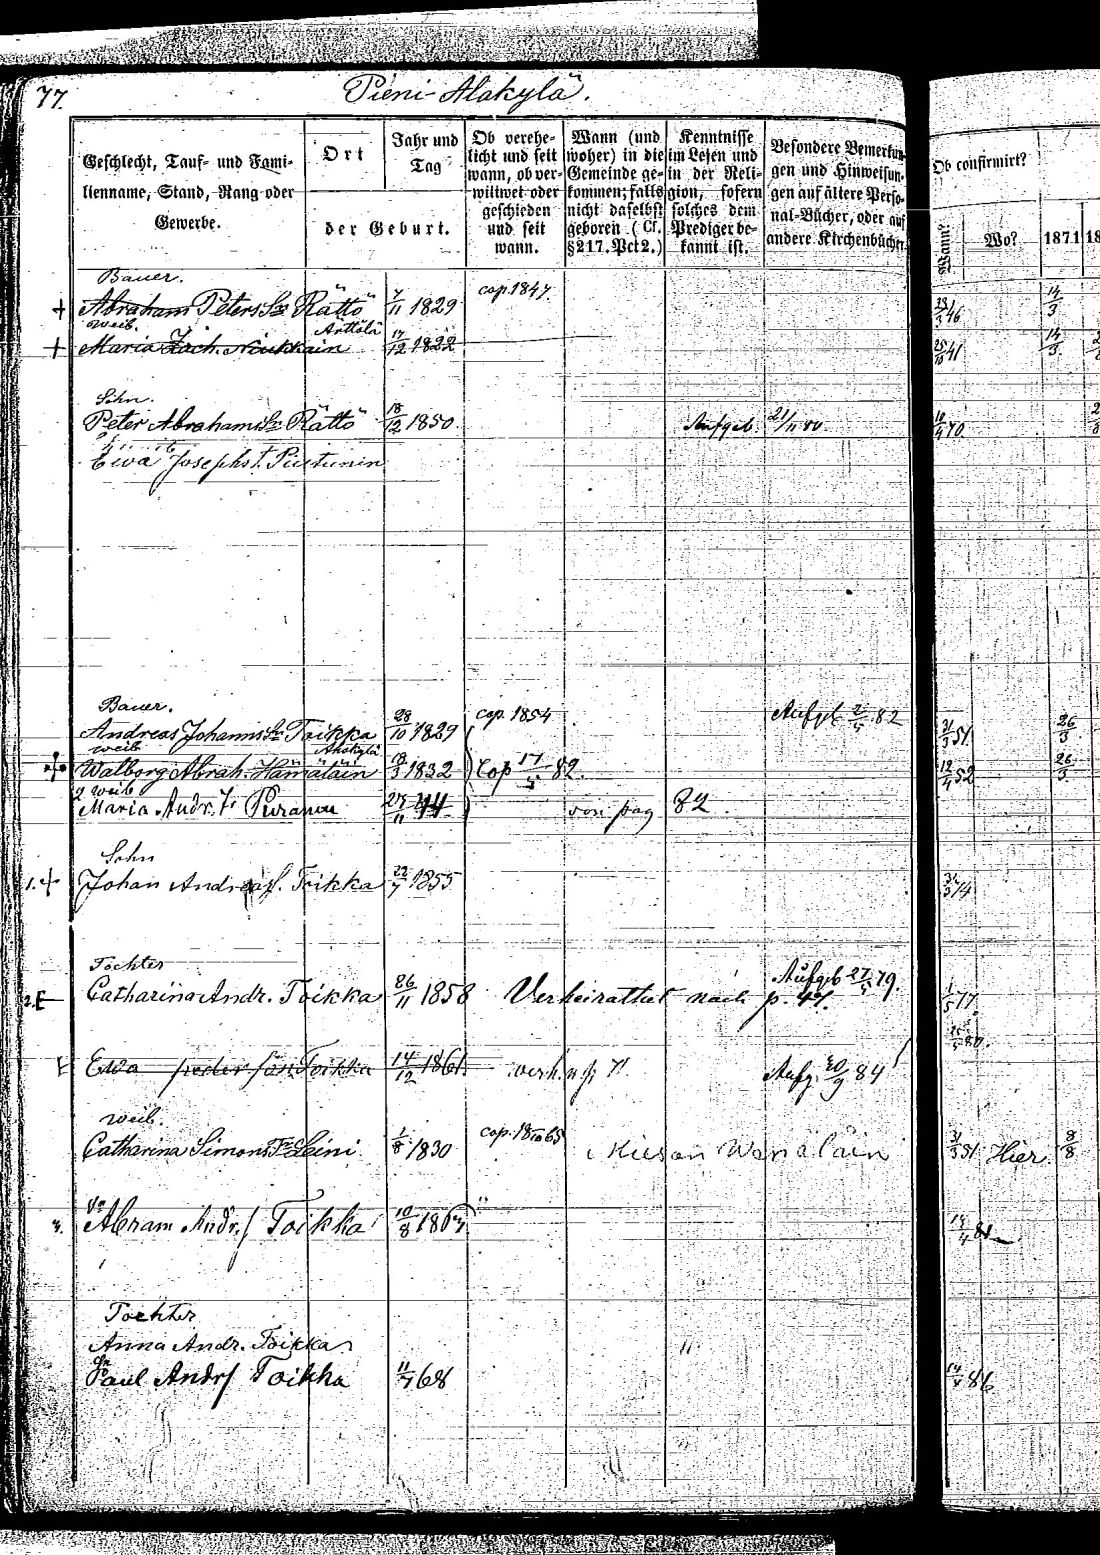 77.
Pieni-Alakylä.
Geschlecht, Tauf- und Fami-
lienname, Stand, Rang oder
Gewerbe.
Ort
der Geburt.
Jahr und
Tag
Ob verehe-
licht und seit
wann, ob ver-
wittwet oder
geschieden
und seit
wann.
Wann (und
woher) in die
Gemeinde ge-
kommen; falls
nicht daselbst
geboren. (Cf.
§217. Pct 2.)
Kenntnisse
im Lesen und
in der Reli-
gion, sofern
solches dem
Prediger be-
kannt ist.
Besondere Bemerkun-
gen und Hinweisun-
gen auf ältere Perso-
nal-Bücher, oder auf
andere Kirchenbücher.
Ob confirmirt?
Wann?
Wo?
1871
18
Bauer.
Abraham Peters Sn Rättö 7/11 1829 cap. 1847. 46 14/3
weib. Arttölä
Maria Zach. Niukkain 17/12 1822 25/10 41 14/3
Sohn.
Peter Abrahams Sn Rättö 18/12 1850 Aufgeb. 21/11 80. 70
Ewa Josephs t.
Bauer.
Andreas Johanns Sn Toikka 28/10 1829 cop. 1854 Aufgeb 2/5 82 31/3 51. 26/3
weib Alakylä
Walborg Abrah. Hämäläin 1832 Cop 17/5 82. 12/4 52 26/3
2 weib
Maria Andr. Tr Puranen 44 von pag 82.
Sohn
1. Johan Andreas S. Toikka 22/7 1855 74
Tochter
2. Catharina Andr. Toikka 26/11 1858 Verheirathet nach p. 47. Aufgeb 27/5 79. 1/5 77.
Ewa Toikka 14/12 1861. verh. n p 71 Aufg. 84
weib.
Catharina Simons Tr Leini 1/8 1830 cop. 18/10 65 31/3 51 Hier 8/8
3. Abram Andr. S Toikka 10/8 1867 81
Tochter
Anna Andr. Toikka
Sn
Paul Andr S Toikka 68 86